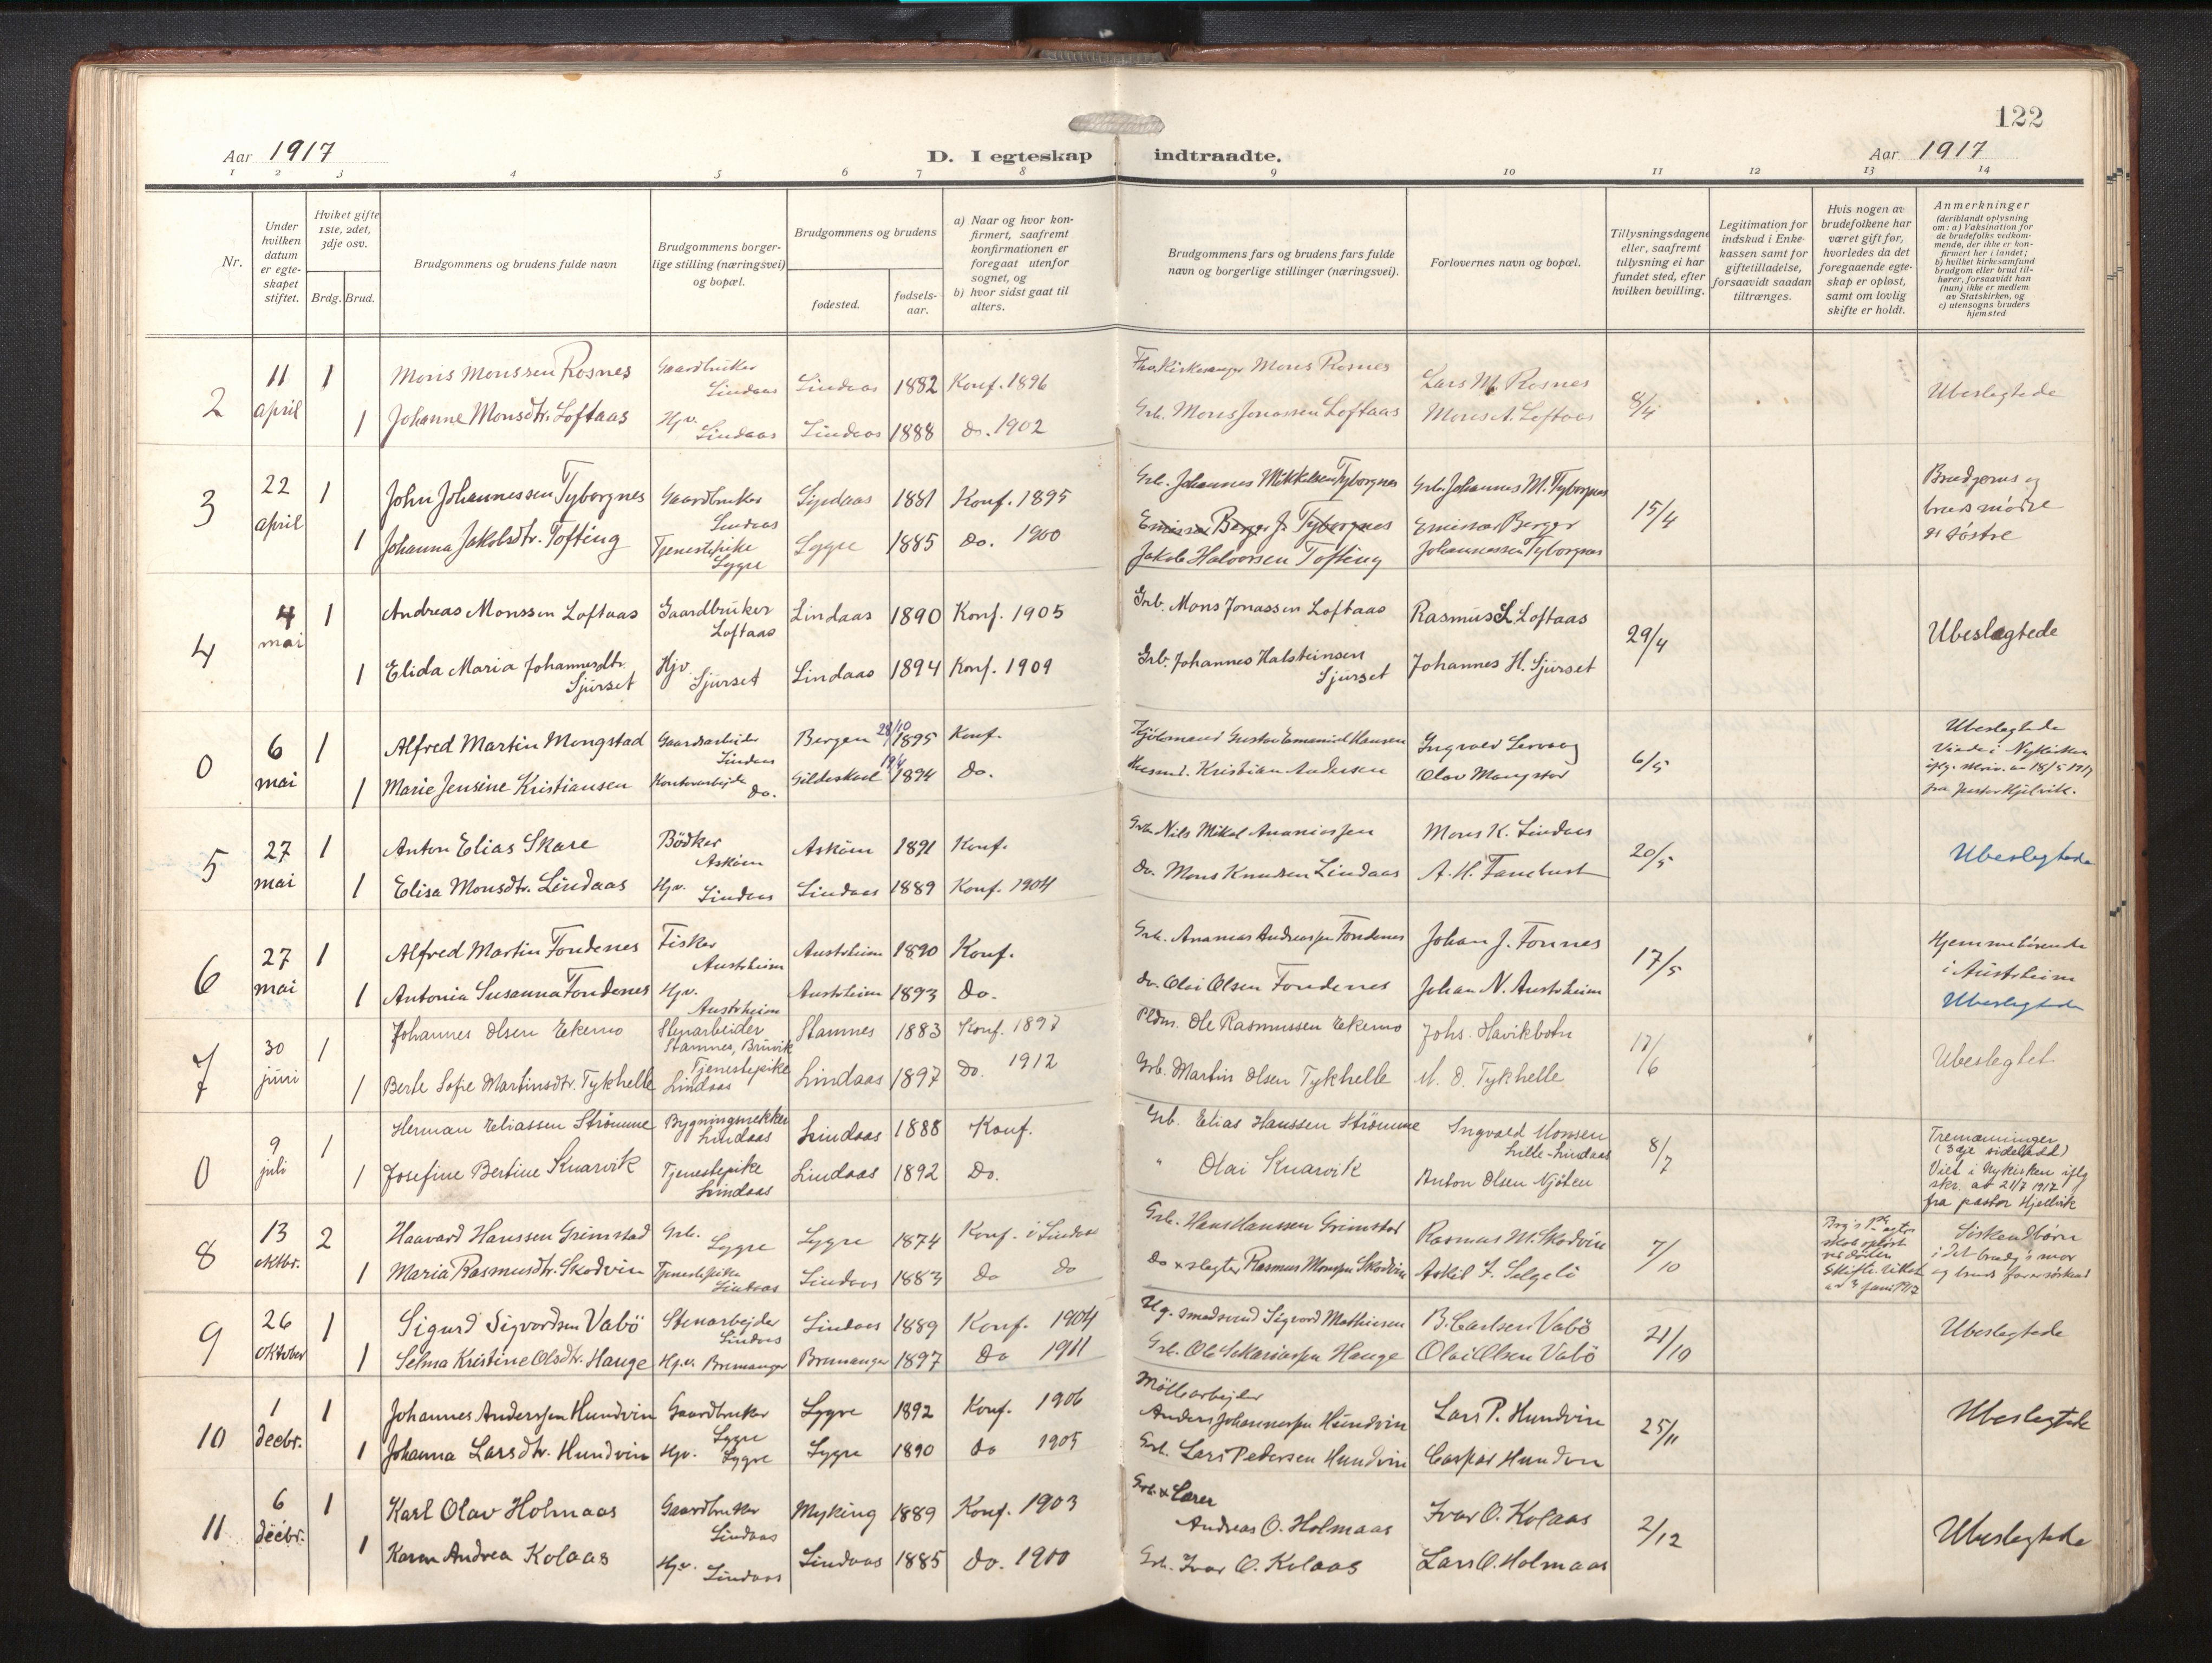 122
Aar 1917
D. I egteskap indtraadte.
Aar 1917
1 2 3 4 5 6 7 8 9 10 11 12 13 14
Nr.
Under hvilken datum er egteskapet stiftet.
Hviket gifte 1ste, 2det, 3dje osv.
Brdg. Brud.
Brudgommens og brudens fulde navn
Brudgommens borgerlige stilling (næringsvei) og bopæl.
Brudgommens og brudens
fødested.
fødselsaar.
a) Naar og hvor konfirmert, saafremt konfirmationen er foregaat utenfor sognet, og
b) hvor sidst gaat til alters.
Brudgommens fars og brudens fars fulde navn og borgerlige stillinger (næringsvei).
Forlovernes navn og bopæl.
Tillysningsdagene eller, saafremt tillysning ei har fundet sted, efter hvilken bevilling.
Legitimation for indskud i Enkekassen samt for giftetilladelse, forsaavidt saadan tiltrænges.
Hvis nogen av brudefolkene har været gift før, hvorledes da det foregaaende egteskap er opløst, samt om lovlig skifte er holdt.
Anmerkninger (deriblandt oplysning om: a) Vaksination for de brudefolks vedkommende, der ikke er konfirmert her i landet; b) hvilket kirkesamfund brudgom eller brud tilhører, forsaavidt han (hun) ikke er medlem av Statskirken, og c) utensogns bruders hjemsted
2 11 april 1 Mons Monssen Rosnes Gaardbruker Lindaas Lindaas 1882 Konf. 1896 Kirkesanger Mons Rosnes Lars M. Rosnes 8/4 Ubeslegtede
1 Johanne Monsdtr. Loftaas Hjv. Lindaas Lindaas 1888 do. 1902 Grb. Mons Jonassen Loftaas Mons A. Loftaas
3 22 april 1 John Johannessen Tyborgnes Gaardbruker Lindaas Lindaas 1881 Konf. 1895 Grb. Johannes Mikkelsen Tyborgnes Grb. Johannes M. Tyborgnes 15/4 Brudgoms og bruds mødre er søstre
1 Johanna Jakobsdtr. Tofting Tjenestepike Lygre Lygre 1885 do. 1900 Emissær Berger J. Tyborgnes Jakob Halvorsen Tofting Emissær Berger Johannessen Tyborgnes
4 4 mai 1 Andreas Monssen Loftaas Gaardbruker Loftaas Lindaas 1890 Konf. 1905 Grb. Mons Jonassen Loftaas Rasmus L Loftaas 29/4 Ubeslægtede
1 Elida Maria Johannesdtr. Sjurset Hjv. Sjurset Lindaas 1894 Konf. 1909 Grb. Johannes Halsteinsen Sjurset Johannes H. Sjurset
0 6 mai 1 Alfred Martin Mongstad Gaardsarbeider Lindaas Bergen 28/10 1895 Konf. Gustav Emanuel Hansen Ingvald Lervaag 6/5 Ubeslegtede Viede i Nykirken iflg. skriv. av 18/5 1917 fra pastor Hjelvik.
1 Marie Jensine Kristiansen Kontorarbeide do. Gildeskaal 19/4 1894 do. Husmd. Kristian Andersen Olav Mongstad
5 27 mai 1 Anton Elias Skare Bødker Askøen Askøen 1891 Konf. Grb. Nils Mikal Ananiassen Mons K. Lindaas 20/5 Ubeslegtede
1 Elisa Monsdtr. Lindaas Hjv. Lindaas Lindaas 1889 Konf. 1904 do. Mons Knudsen Lindaas A. H. Fanebust
6 27 mai 1 Alfred Martin Fondenes Fisker Austrheim Austrheim 1890 Konf. Grb. Ananias Andreassen Fondenes Johan J. Fonnes 17/5 Hjemmehørende i Austrheim Ubeslegtede
1 Antonia Susanna Fondenes Hjv. Austrheim Austrheim 1893 do. do. Olai Olsen Fondenes Johan N. Austrheim
7 30 juni 1 Johannes Olsen Ekemo Stenarbeider Stamnes, Bruvik Stamnes 1883 Konf. 1897 Pldm. Ole Rasmussen Ekemo Johs. Havikbotn 17/6 Ubeslegtet
1 Berte Sofie Martinsdtr. Tykhelle Tjenestepike Lindaas Lindaas 1897 do. 1912 Grb. Martin Olsen Tykhelle M. O. Tykhelle
0 9 juli 1 Herman Eliassen Strømme Bygningsnekker Lindaas Lindaas 1888 Konf. Grb. Elias Hanssen Strømme Ingvald Monsen Lille-Lindaas 8/7 Tremænninger (3dje sideledd) Viet i Nykirken iflg skr. at 21/7 1917 fra pastor Hjellvik
1 Josefine Bertine Knarvik Tjenestepike Lindaas Lindaas 1892 Do. " Olai Knarvik Anton Olsen Njøten
8 13 oktbr. 2 Haavard Hanssen Grimstad Grb. Lygre Lygre 1874 Konf. i Lindaas Grb. Hans Hanssen Grimstad Rasmus M. Skodvin 7/10 Søskendbørn i det brudg's mor og bruds far er søskend
1 Maria Rasmusdtr. Skodvin Tjenestepike Lindaas Lindaas 1883 do do do & slagter Rasmus Monsen Skodvin Askil F. Selgeli
9 26 oktober 1 Sigurd Sigvardsen Vabø Stenarbejder Lindaas Lindaas 1889 Konf. 1904 Ug. smedsvend Sigvard Mathiesen B. Carlsen Vabø 21/10 Ubeslegtede
1 Selma Kristine Olsdtr. Hauge Hjv. Bremanger Bremanger 1897 do 1911 Grb. Ole Sakariassen Hauge Olai Olsen Vabø
10 1 decbr. 1 Johannes Anderssen Hundvin Gaardbruker Lygre Lygre 1892 Konf. 1906 Møllearbejder Anders Johannessen Hundvin Lars P. Hundvin 25/11 Ubeslegtede
1 Johanna Larsdtr. Hundvin Hjv. Lygre Lygre 1890 do 1905 Grb. Lars Pedersen Hundvin Caspar Hundvin
11 6 decbr. 1 Karl Olav Holmaas Gaardbruker Lindaas Myking 1889 Konf. 1903 Grb. & Lærer Andreas O. Holmaas Ivar O. Kolaas 2/12 Ubeslegtede
1 Karen Andrea Kolaas Hjv. Lindaas Lindaas 1885 do. 1900 Grb. Ivar O. Kolaas Lars O. Holmaas